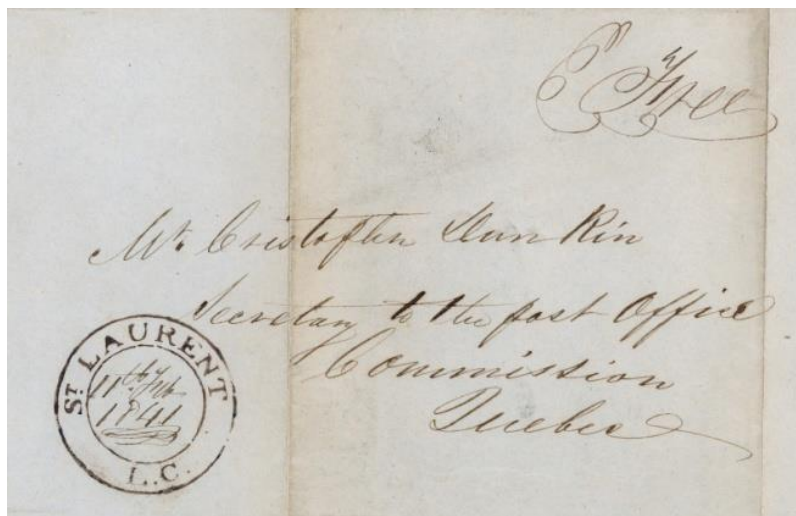 Free
Mr Cristofher Dun Kin
Secretary to the post Office
Commission
Quebec
ST LAURENT
11th Feb
1841
L.C.